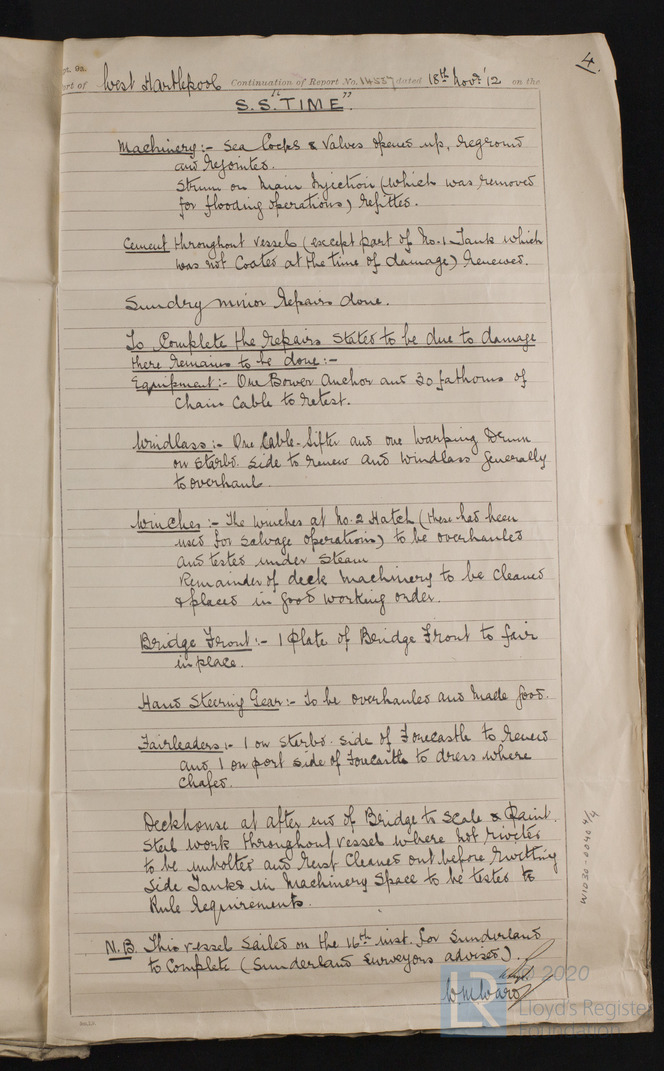 4.
Rpt. 9a.
Port of West Hartlepool Continuation of Report No. 14537 dated 18th Novr. '12 on the
S.S. "TIME".
Machinery :- Sea Cocks & Valves opened up, reground
and rejointed.
Strum on Main Injection (which was removed
for flooding operations) refitted.
Cement throughout vessel (except part of No. 1 Tank which
was not coated at the time of damage) renewed.
Sundry minor repairs done.
To Complete the repairs stated to be due to damage
there remains to be done :-
Equipment :- One Bower Anchor and 30 fathoms of
Chain Cable to retest.
Windlass :- One Cable-lifter and one Warping Drum
on Starbd. side to renew and windlass generally
to overhaul.
Winches :- The winches at No. 2 Hatch (these had been
used for salvage operations) to be overhauled
and tested under steam
Remainder of deck machinery to be cleaned
& placed in good working order.
Bridge Front :- 1 plate of Bridge Front to fair
in place.
Hand Steering Gear :- To be overhauled and made good.
Fairleaders :- 1 on Starbd. side of Forecastle to renew
and 1 on port side of Forecastle to dress where
chafed.
Deckhouse at after end of Bridge to scale & Paint.
Steel work throughout vessel where not riveted
to be unbolted and rust cleaned out before rivetting
Side Tanks in Machinery Space to be tested to
Rule Requirements.
N.B. This vessel sailed on the 16th inst. for Sunderland
to complete (Sunderland Surveyors advised).
W.M. Ward
W1030-0040 4/4
LR
© 2020
Lloyd's Register
Foundation